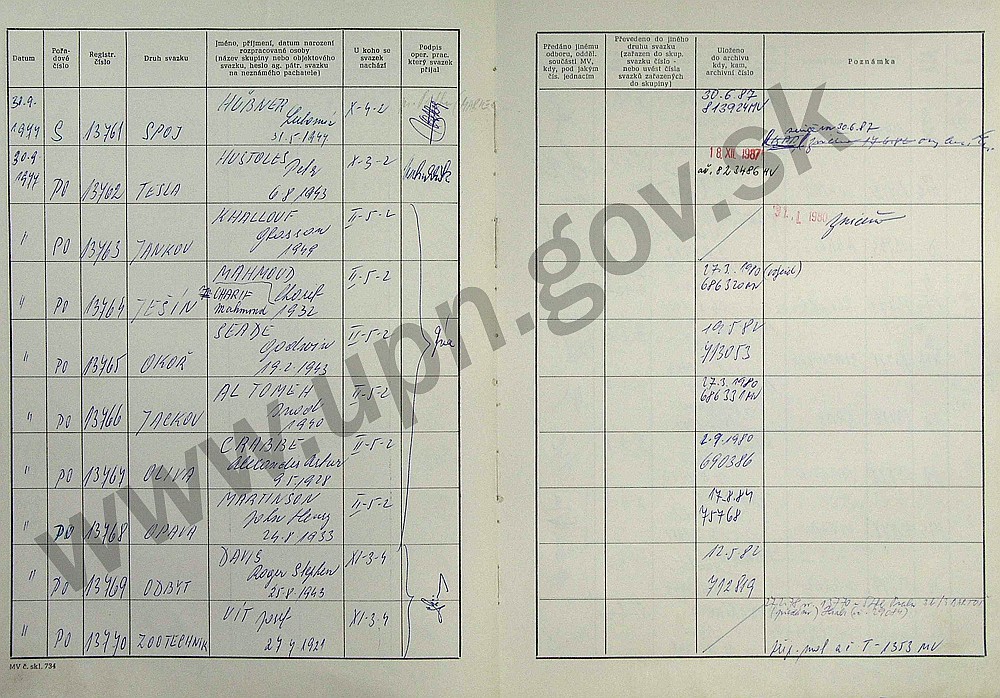 Datum
Pořa-
dové
číslo
Registr.
číslo
Druh svazku
Jméno, příjmení, datum narození
rozpracované osoby
(název skupiny nebo objektového
svazku, heslo ag. pátr. svazku
na neznámého pachatele)
U koho se
svazek
nachází
Podpis
oper. prac.
který svazek
přijal
Předáno jinému
odboru, odděl.
součásti MV,
kdy, pod jakým
čís. jednacím
Převedeno do jiného
druhu svazku
(zařazen do skup.
svazku číslo -
nebo uvést čísla
svazků zařazených
do skupiny)
Uloženo
do archivu
kdy, kam,
archivní číslo
Poznámka
30.9.
1977 S 13761 SPOJ HÜBNER
Lubomír
31.5.1947 X-4-2
30.6.87
813924 MV
30.9
1977 PO 13762 TESLA HUSTOLES
Petr
6.8.1943 X-3-2
18. XII. 1987
ač. 823486 MV
" PO 13763 JANKOV KHALLOUF
Ghassan
1949 II-5-2
31. I. 1980 zničen
" PO 13764 TEŠÍN MAHMOUD
CHARIF
Mahmoud
1932 II-5-2
27.3.1980
686320 MV
" PO 13765 OKOŘ SEADE
Godwin
19.2.1943 II-5-2
19.5.82
713053
" PO 13766 JACKOV AL TOMEH
1940 II-5-2
27.3.1980
686331 MV
" PO 13767 OLIVA CRABBE
Alexander Artur
9.5.1928 II-5-2
2.9.1980
690386
" PO 13768 OPAVA MARTINSON
John Henry
24.8.1933 II-5-2
17.8.84
75768
" PO 13769 ODBYT DAVIS
Roger Stephen
25.8.1943 XI-3-4
12.5.82
712819
" PO 13770 ZOOTECHNIK VÍT Josef
1921 XI-3-4
T-1353 MV
MV č. skl. 734
www.upn.gov.sk